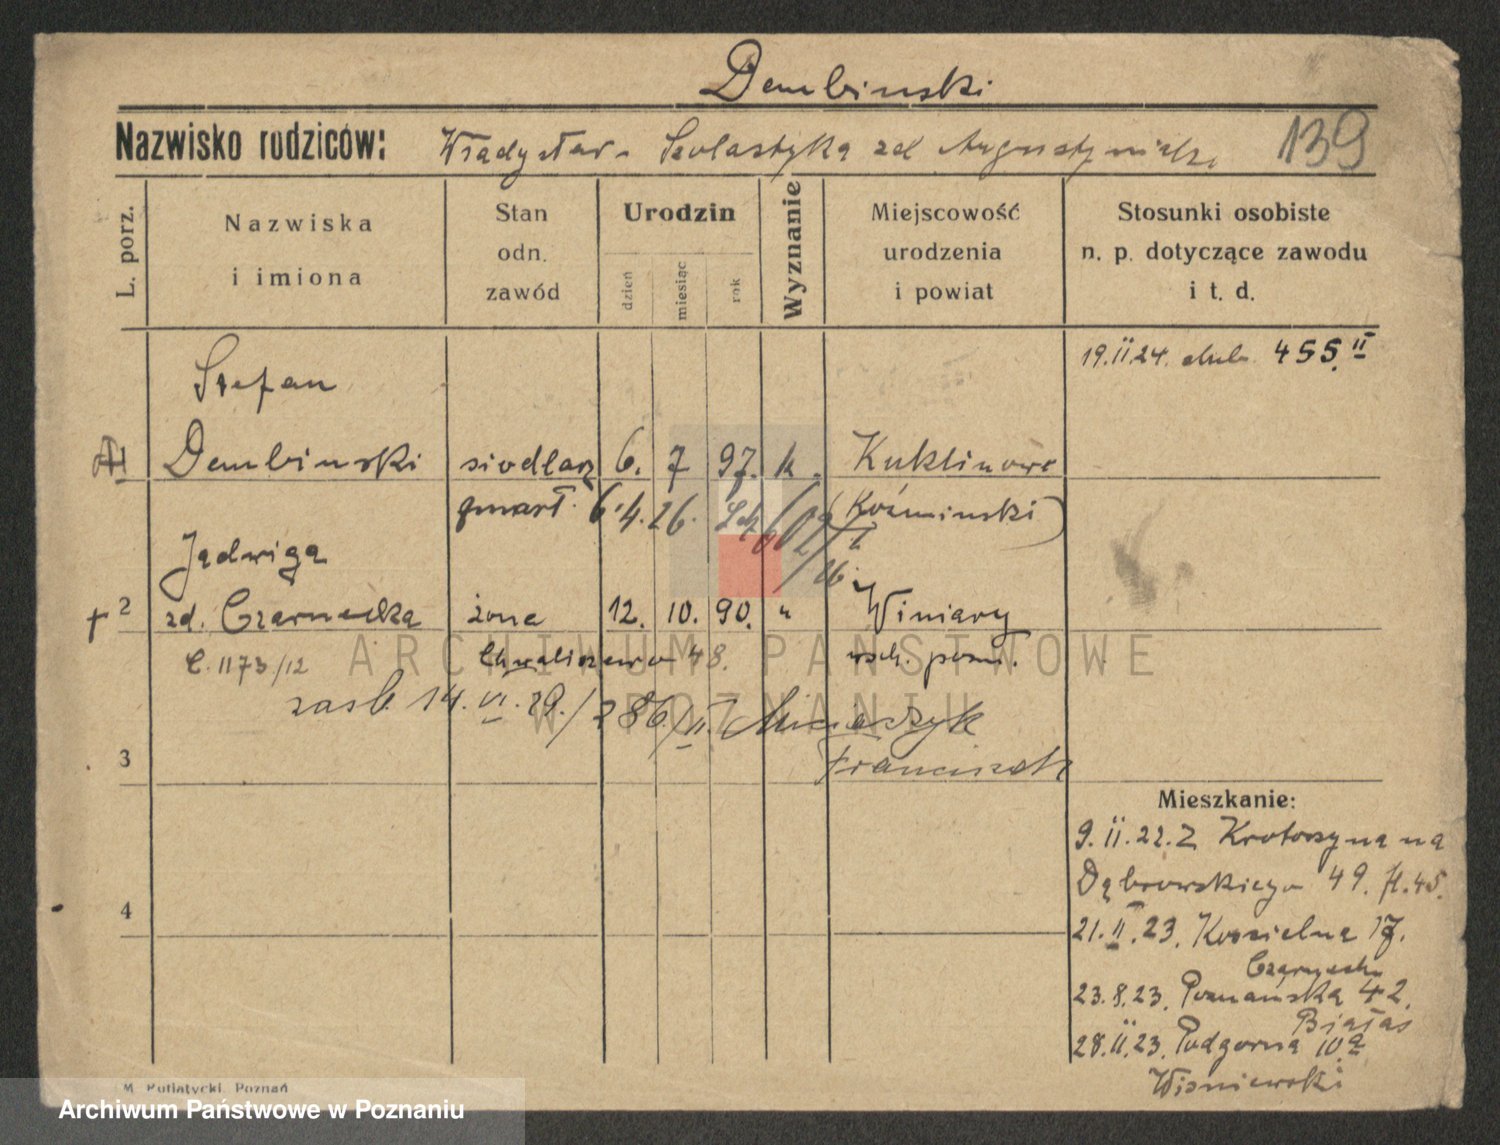 Dembinski
Nazwisko rodziców: Władysław - Scolastyka zd Augustyniak
139
L. porz.
Nazwiska
i imiona
Stan
odn.
zawód
Urodzin
dzień
miesiąc
rok
Wyznanie
Miejscowość
urodzenia
i powiat
Stosunki osobiste
n. p. dotyczące zawodu
i t. d.
19.II 24. 455. II
Stefan
1 Dembinski siodlarz 6. 7 97. k. Kuklinowo
zmarł 6.4.26. (Koźminski)
602/II
26.
Jadwiga
2 zd. Czarnecka żona 12. 10. 90. " Winiary
C. 1173/12 Chwaliszewo 48. wsch. pozn.
zasb. 14. VI. 29. / 286/II.
Franciszek
3
Mieszkanie:
9. II. 22. Z Krotoszyna na
Dąbrowskiego 49.
4
21. II. 23. Kościelna 17.
Czarnecki
23. 8. 23. Poznańska 42.
Białas
28. II. 23. Podgórna 10a
Wisniewski
M. Putiatycki, Poznań
ARCHIWUM PAŃSTWOWE
W POZNANIU
Archiwum Państwowe w Poznaniu